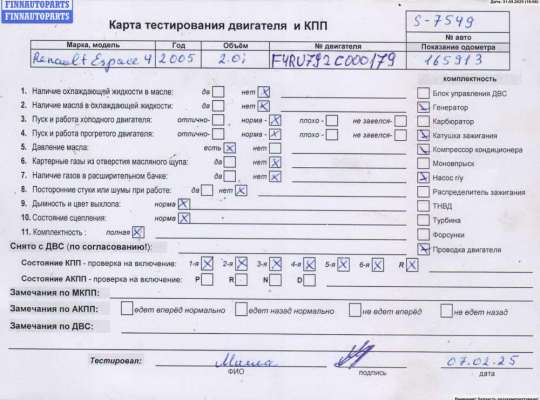 FINNAUTOPARTS
FINNAUTOPARTS
Карта тестирования двигателя и КПП
S-7549
№ авто
Марка, модель Год Объём № двигателя Показание одометра
Renault Espace 4 2005 2.0i F4RU792C000179 165913
комплектность
1. Наличие охлаждающей жидкости в масле: да нет X
Блок управления ДВС
2. Наличие масла в охлаждающей жидкости: да нет X
Генератор
3. Пуск и работа холодного двигателя: отлично- норма - X плохо - не завелся-
Карбюратор
4. Пуск и работа прогретого двигателя: отлично- норма - X плохо - не завелся-
Катушка зажигания
5. Давление масла: есть X нет
Компрессор кондиционера
6. Картерные газы из отверстия масляного щупа: да нет X
Моновпрыск
7. Наличие газов в расширительном бачке: да нет X
Насос г/у
8. Посторонние стуки или шумы при работе: да нет X
Распределитель зажигания
9. Дымность и цвет выхлопа: норма X
ТНВД
10. Состояние сцепления: норма X
Турбина
11. Комплектность : полная X
Форсунки
Снято с ДВС (по согласованию!):
Проводка двигателя
Состояние КПП - проверка на включение: 1-я X 2-я X 3-я X 4-я X 5-я X 6-я X R X
Состояние АКПП - проверка на включение: P R N D
Замечания по МКПП:
Замечания по АКПП: едет вперёд нормально едет назад нормально не едет вперёд не едет назад
Замечания по ДВС:
Тестировал: 07.02.25
ФИО подпись дата